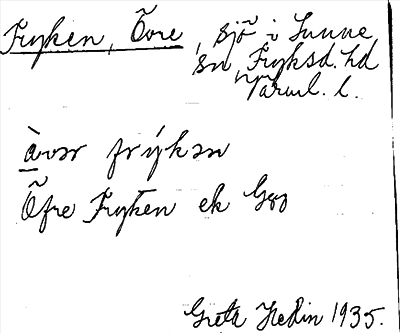 Fryken, Övre, sjö i Sunne
sn, Fryksd. hd
Värml. l.
àvər frýkən
Öfre Fryken ek G
Greta Hedin 1935.